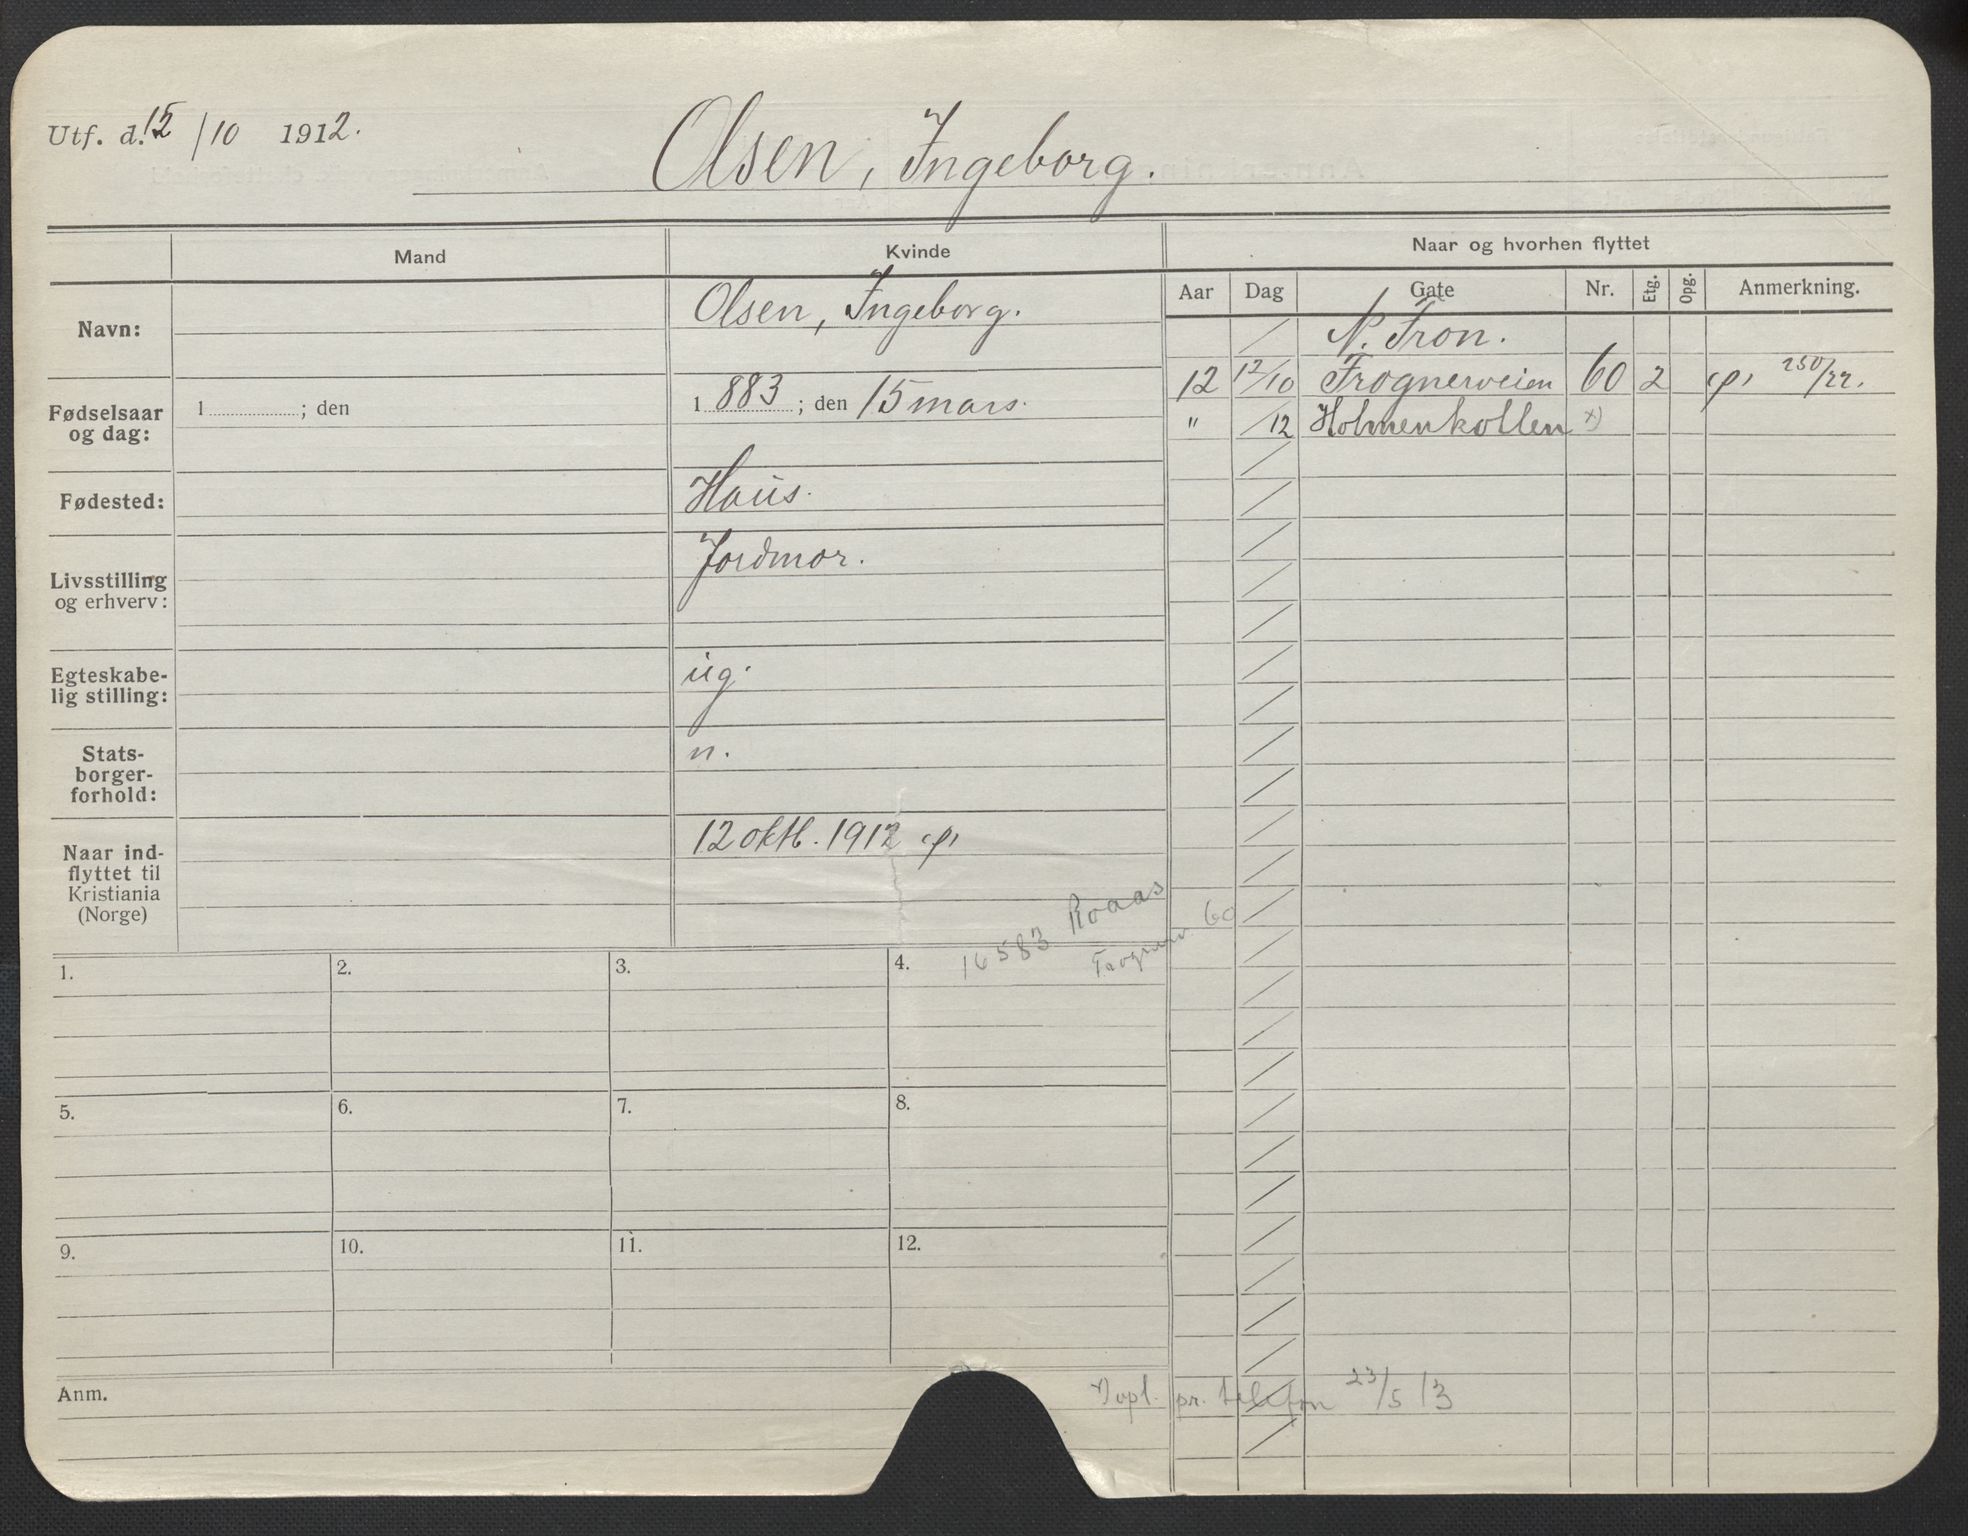 Utf. d. 15/10 1912.
Olsen, Ingeborg.
Mand
Kvinde
Naar og hvorhen flyttet
Aar Dag Gate Nr. Etg. Opg. Anmerkning.
Navn:
Olsen, Ingeborg.
Fødselsaar
og dag:
1 ; den
1883; den 15 mars.
Fødested:
Haus.
Livsstilling
og erhverv:
Jordmor.
Egteskabe-
lig stilling:
ug.
Stats-
borger-
forhold:
n.
Naar ind-
flyttet til
Kristiania
(Norge)
12 oktb. 1912
N. Fron.
12 12/10 Frognerveien 60 2 250/22.
" /12 Holmenkollen x)
16583 Roaas
Frognerv. 60
1. 2. 3. 4.
5. 6. 7. 8.
9. 10. 11. 12.
Anm.
x) opl. pr. telefon 23/5 13